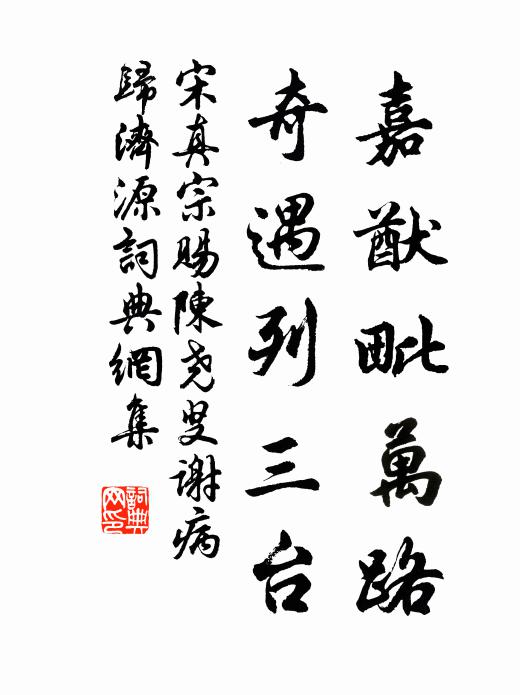 嘉猷毗萬路
奇遇列三台
宋真宗賜陳尧叟謝病
歸濟源詞典網集
詞典网印